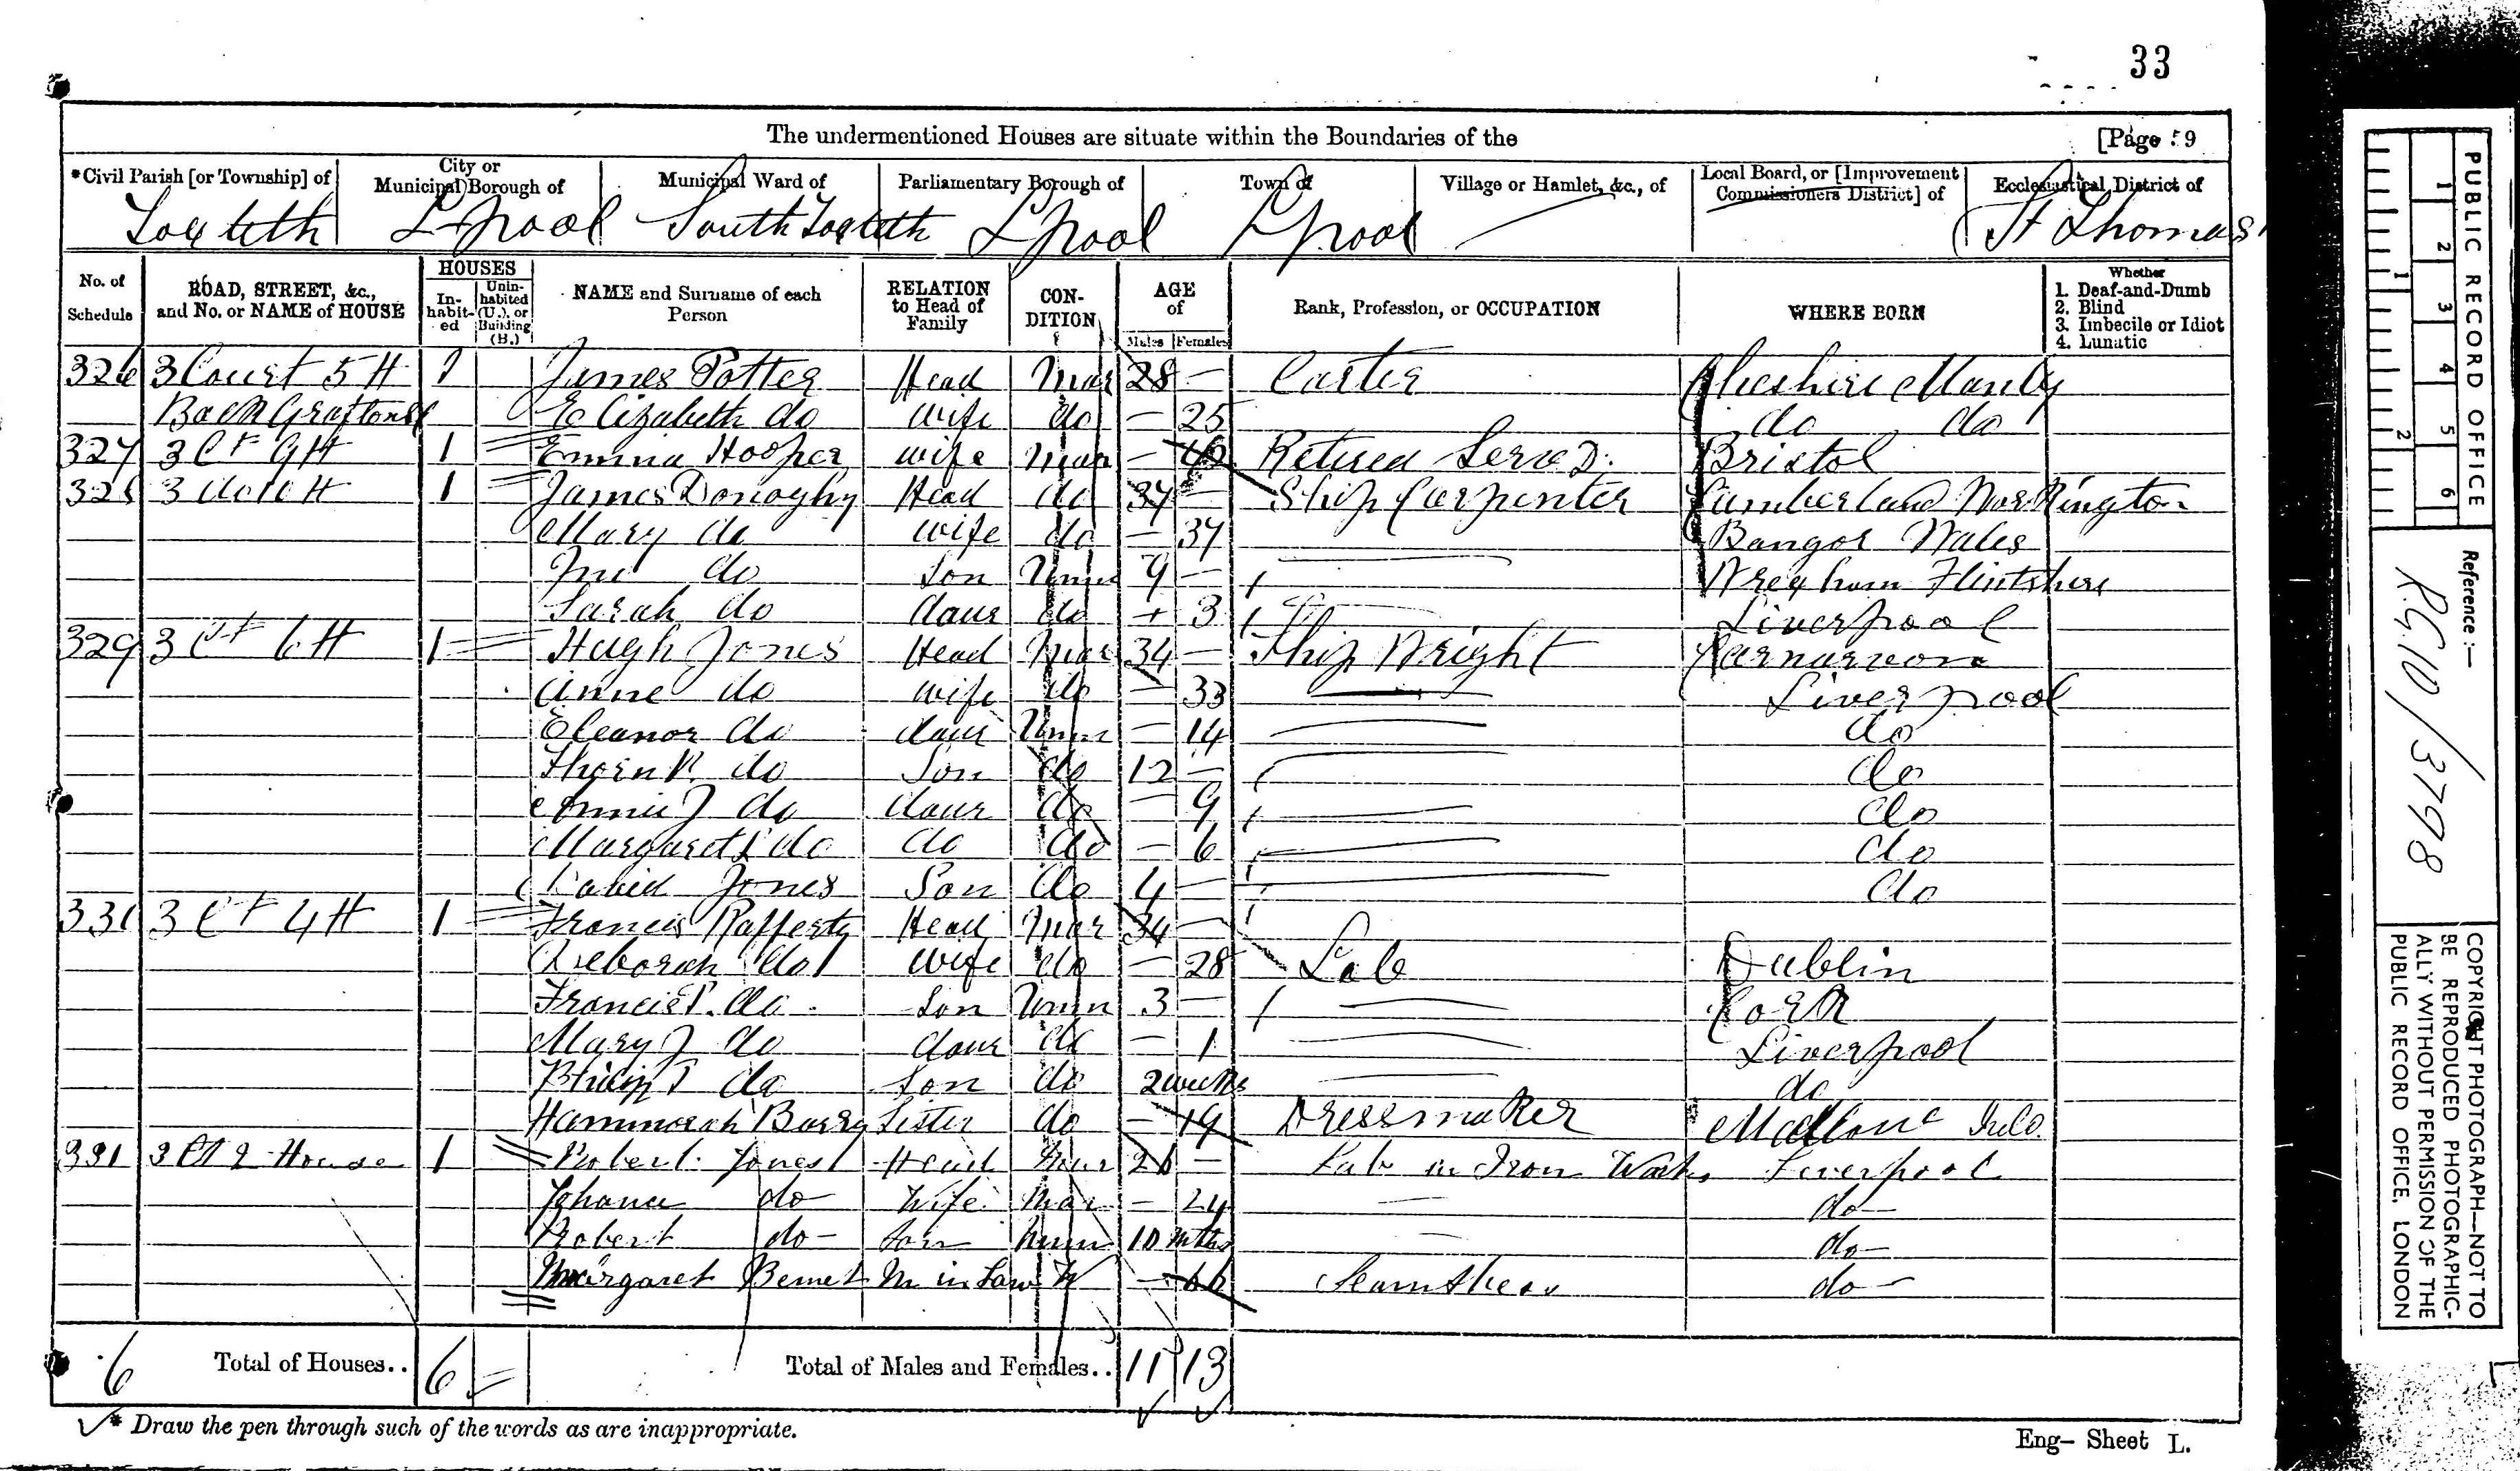 33
The undermentioned Houses are situate within the Boundaries of the [Page 59
*Civil Parish [or Township] of City or Municipal Borough of Municipal Ward of Parliamentary Borough of Town of Village or Hamlet, &c., of Local Board, or [Improvement Commissioners District] of Ecclesiastical District of
Toxteth L'pool South Toxteth L'pool L'pool St Thomas
No. of Schedule ROAD, STREET, &c., and No. or NAME of HOUSE HOUSES In-habit-ed Unin-habited (U.), or Building (B.) NAME and Surname of each Person RELATION to Head of Family CON-DITION AGE of Males Females Rank, Profession, or OCCUPATION WHERE BORN Whether 1. Deaf-and-Dumb 2. Blind 3. Imbecile or Idiot 4. Lunatic
326 3 Court 5 H 1 James Potter Head Mar 28 — Carter Cheshire Manly
Back Grafton St Elizabeth do wife do — 25 do do
327 3 Ct 9 H 1 Emma Hooper wife Mar — Retired Bristol
328 3 do 10 H 1 James Donoghy Head do 37 — Ship Carpenter Cumberland Workington
Mary do wife do — 37 Bangor Wales
Jno do Son Unm 9 — Wrexham Flintshire
Sarah do daur do 3 Liverpool
329 3 Ct 6 H 1 Hugh Jones Head Mar 34 — Ship Wright Carnarvon
Anne do wife do — 33 Liverpool
Eleanor do daur Unm — 14 do
do Son do 12 — do
Annie J do daur do — 9 do
Margaret do do do — 6 do
David Jones Son do 4 — do
330 3 Ct 4 H 1 Francis Rafferty Head Mar 34 —
Deborah do wife do — 28 Lab Dublin
Francis P. do Son Unm 3 — Cork
Mary J do daur do — 1 Liverpool
do Son do 2 weeks do
Hannorah Barry Sister do — 19 Dressmaker
331 3 Ct 2 House 1 Robert Jones Head Mar 26 — Lab in Iron Works Liverpool
Johana do Wife Mar — 24 do
Robert do Son Unm 10 mths do
Margaret M in Law W — 66 Seamstress do
6 Total of Houses.. 6 Total of Males and Females.. 11 13
* Draw the pen through such of the words as are inappropriate.
Eng- Sheet L.
PUBLIC RECORD OFFICE
1 2 3 4 5 6
1 2
Reference :—
R.G. 10 / 3798
COPYRIGHT PHOTOGRAPH—NOT TO
BE REPRODUCED PHOTOGRAPHIC-
ALLY WITHOUT PERMISSION OF THE
PUBLIC RECORD OFFICE, LONDON